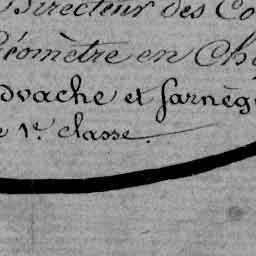 Directeur des Co
Géomètre en Ch
dvache et Farnèg
e 1.e classe.